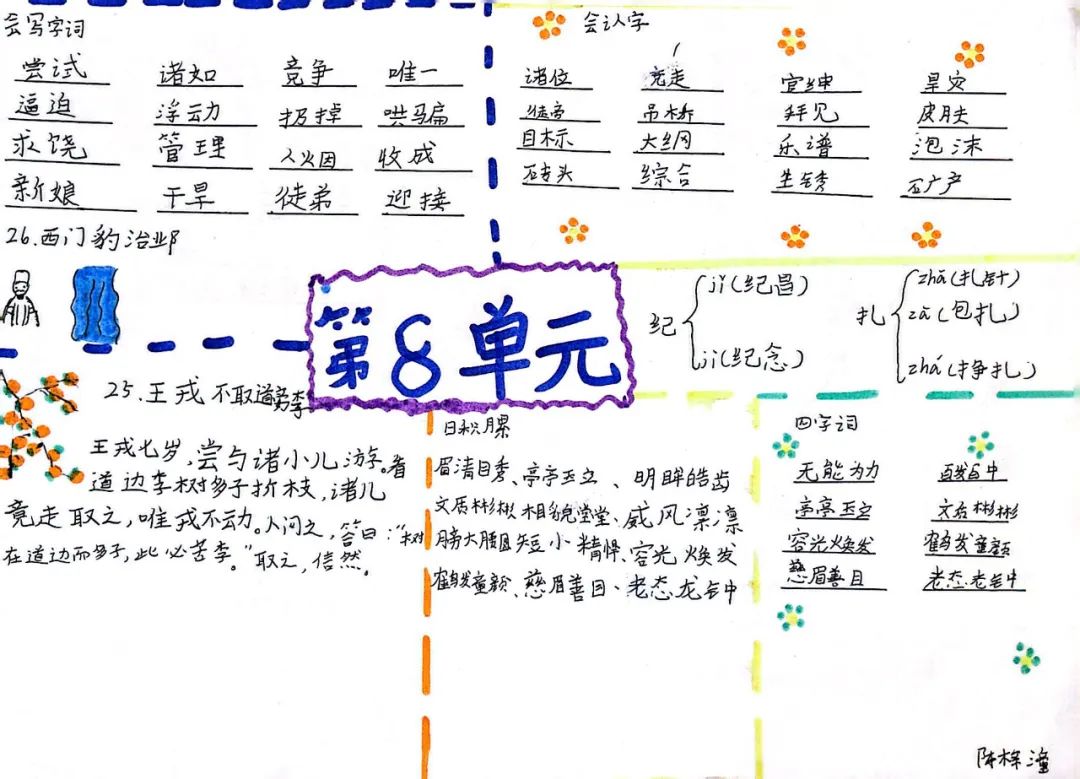 会写字词
尝试 诸如 竞争 唯一
逼迫 浮动 扔掉 哄骗
求饶 管理 人火因 收成
新娘 干旱 徒弟 迎接
26.西门豹治邺
会认字
诸位 竞走 官绅 旱灾
徒弟 吊桥 拜见 皮肤
目标 大纲 乐谱 泡沫
砖头 综合 生锈 矿产
第8单元
纪
jǐ(纪昌)
jì(纪念)
扎
zhā(扎针)
zā(包扎)
zhá(挣扎)
25.王戎不取道旁李
王戎七岁,尝与诸小儿游。看
道边李树多子折枝,诸儿
竞走取之,唯戎不动。人问之,答曰:“树
在道边而多子,此必苦李。”取之,信然。
日积月累
眉清目秀、亭亭玉立、明眸皓齿
文质彬彬、相貌堂堂、威风凛凛
膀大腰圆、短小精悍、容光焕发
鹤发童颜、慈眉善目、老态龙钟
四字词
无能为力
亭亭玉立 文质彬彬
容光焕发 鹤发童颜
慈眉善目 老态老钟
陈梓潼